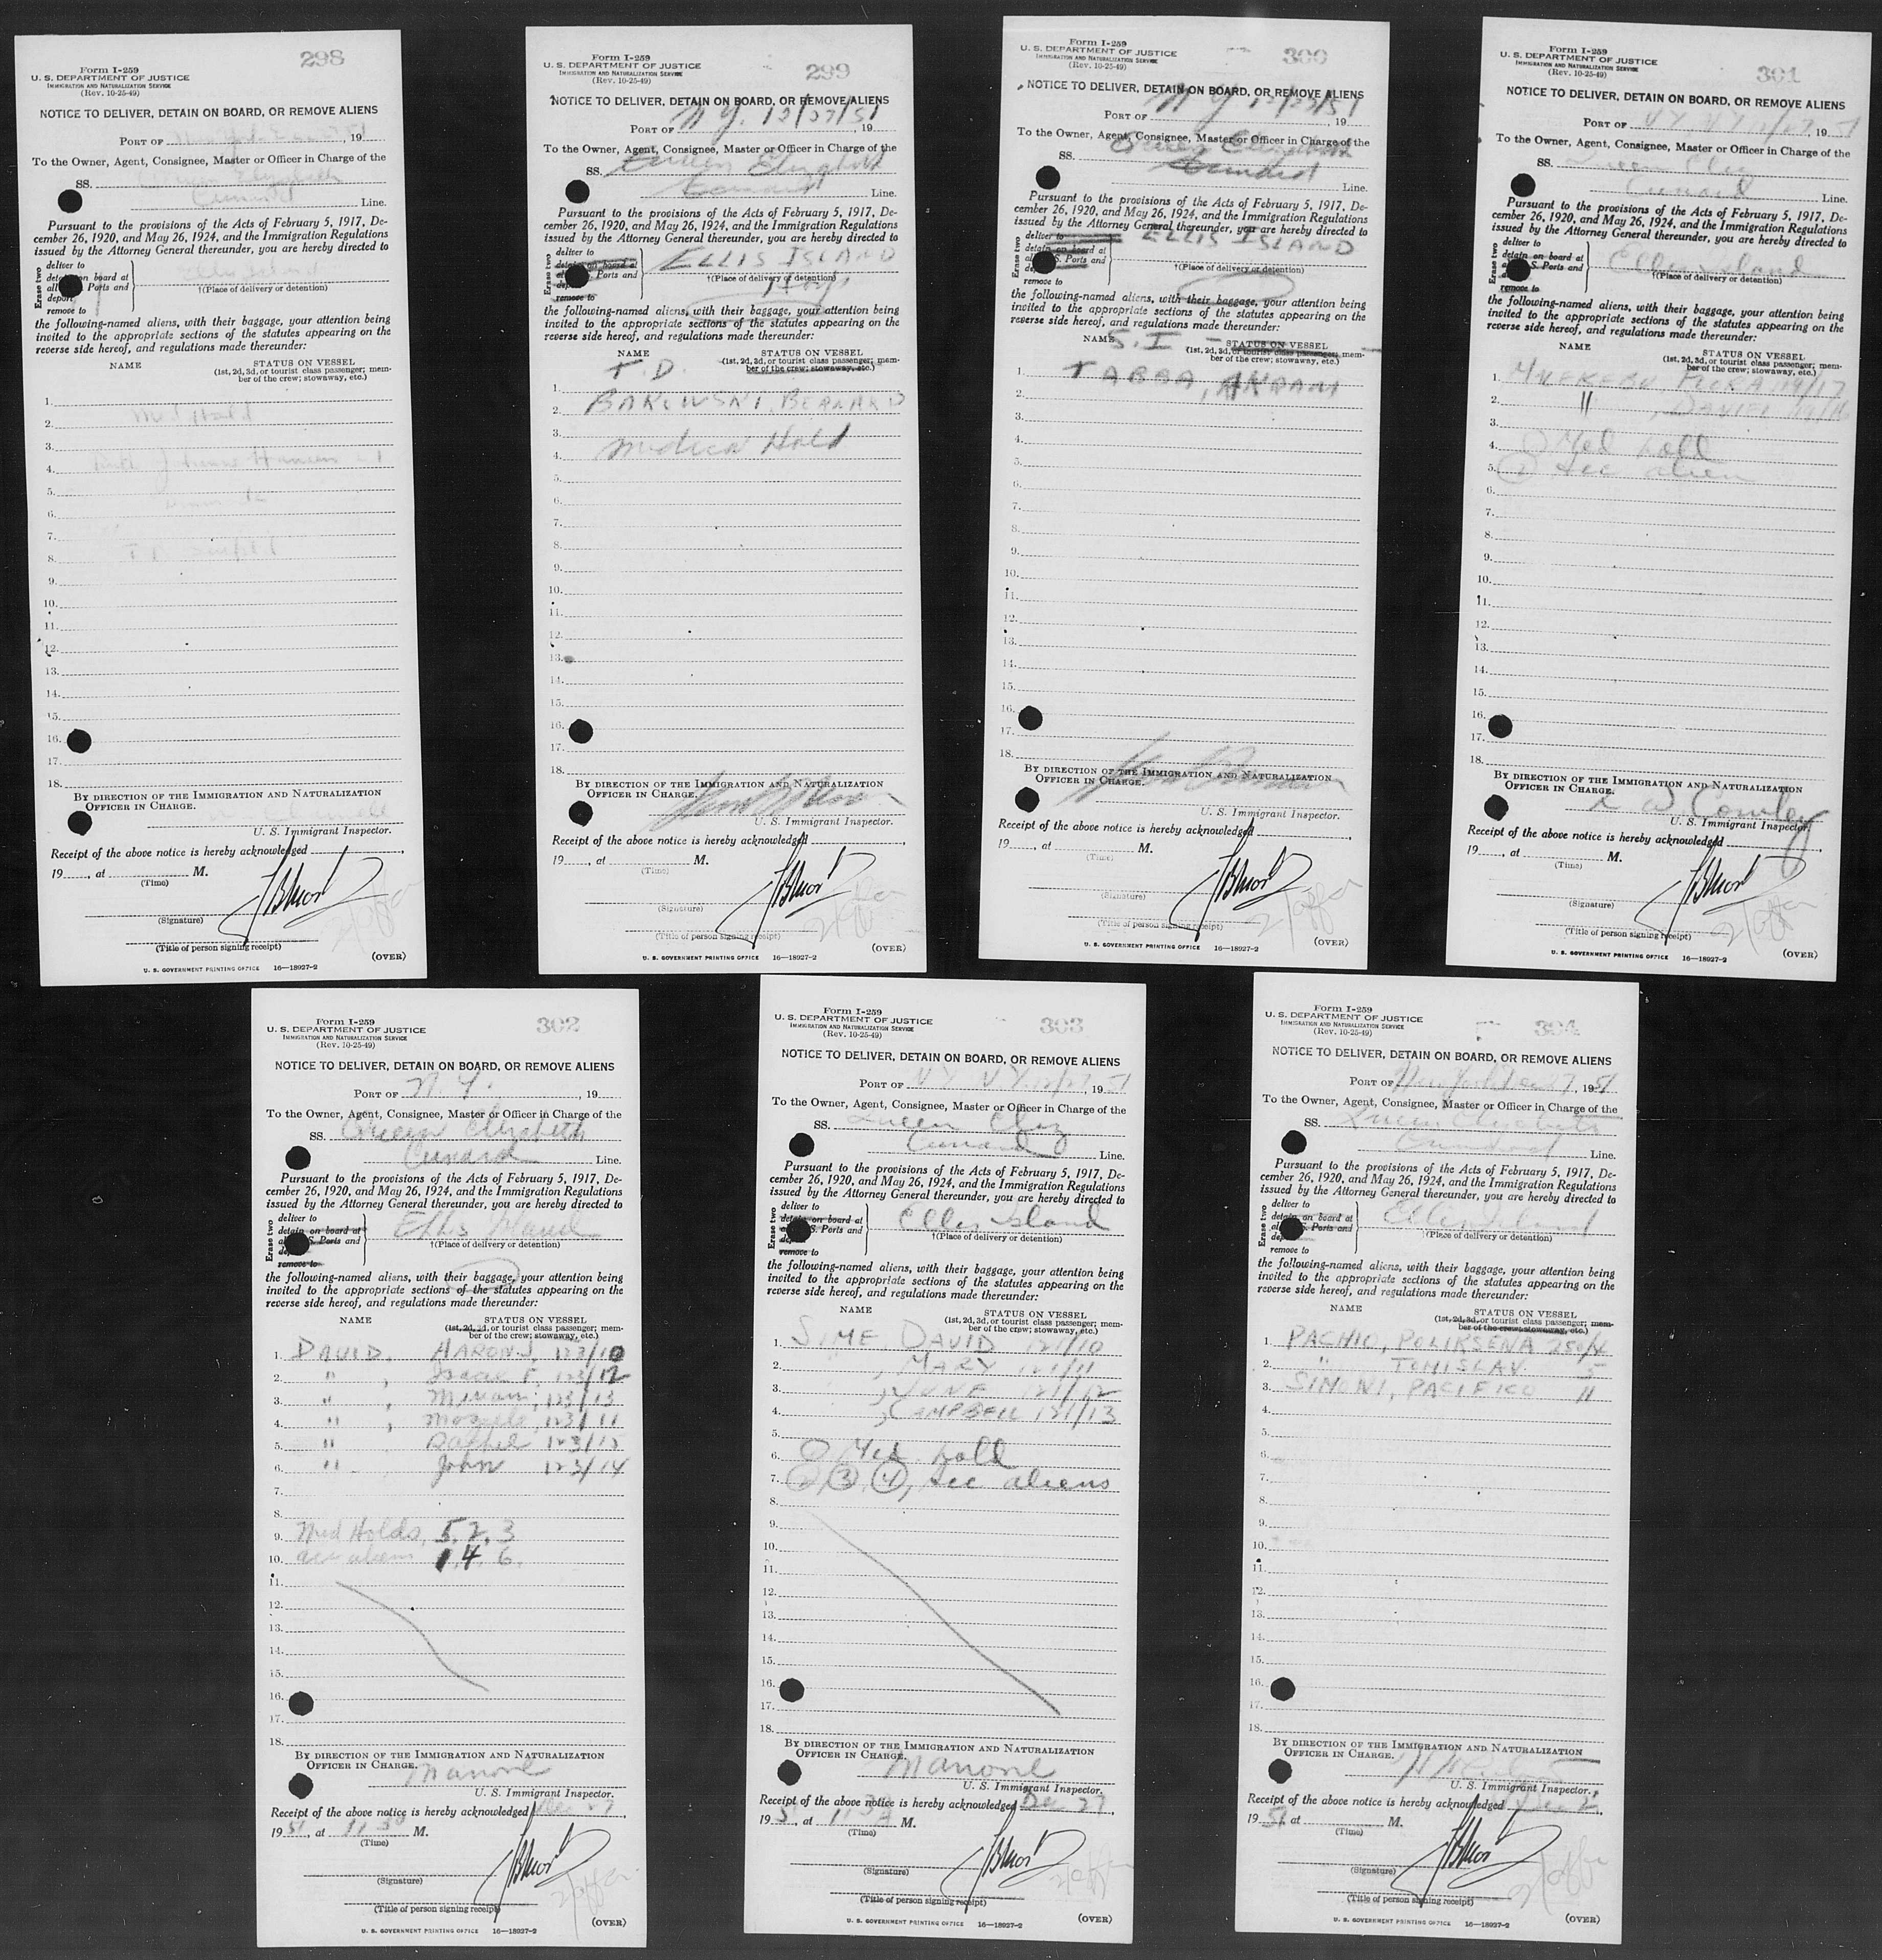 298
Form I-259
U. S. DEPARTMENT OF JUSTICE
IMMIGRATION AND NATURALIZATION SERVICE
(Rev. 10-25-49)
NOTICE TO DELIVER, DETAIN ON BOARD, OR REMOVE ALIENS
PORT OF , 19
To the Owner, Agent, Consignee, Master or Officer in Charge of the
SS. Elizabeth
Cunard Line.
Pursuant to the provisions of the Acts of February 5, 1917, De-
cember 26, 1920, and May 26, 1924, and the Immigration Regulations
issued by the Attorney General thereunder, you are hereby directed to
Erase two
deliver to
detain on board at
all Ports and
deport
remove to
Ellis Island
†(Place of delivery or detention)
the following-named aliens, with their baggage, your attention being
invited to the appropriate sections of the statutes appearing on the
reverse side hereof, and regulations made thereunder:
NAME STATUS ON VESSEL
(1st, 2d, 3d, or tourist class passenger; mem-
ber of the crew; stowaway, etc.)
1.
2. Med Hold
3.
4.
5.
6.
7.
8.
9.
10.
11.
12.
13.
14.
15.
16.
17.
18.
BY DIRECTION OF THE IMMIGRATION AND NATURALIZATION
OFFICER IN CHARGE.
U. S. Immigrant Inspector.
Receipt of the above notice is hereby acknowledged
19 , at M.
(Time)
(Signature)
(Title of person signing receipt)
U. S. GOVERNMENT PRINTING OFFICE 16—18927-2
(OVER)
299
Form I-259
U. S. DEPARTMENT OF JUSTICE
IMMIGRATION AND NATURALIZATION SERVICE
(Rev. 10-25-49)
NOTICE TO DELIVER, DETAIN ON BOARD, OR REMOVE ALIENS
PORT OF N.Y. 12/27/51, 19
To the Owner, Agent, Consignee, Master or Officer in Charge of the
SS. Queen Elizabeth
Cunard Line.
Pursuant to the provisions of the Acts of February 5, 1917, De-
cember 26, 1920, and May 26, 1924, and the Immigration Regulations
issued by the Attorney General thereunder, you are hereby directed to
Erase two
deliver to
detain on board at
S. Ports and
remove to
ELLIS ISLAND
†(Place of delivery or detention)
the following-named aliens, with their baggage, your attention being
invited to the appropriate sections of the statutes appearing on the
reverse side hereof, and regulations made thereunder:
NAME STATUS ON VESSEL
T.D. (1st, 2d, 3d, or tourist class passenger; mem-
ber of the crew; stowaway, etc.)
1.
2. BAKOWSKI, BERNARD
3.
4. Medical Hold
5.
6.
7.
8.
9.
10.
11.
12.
13.
14.
15.
16.
17.
18.
BY DIRECTION OF THE IMMIGRATION AND NATURALIZATION
OFFICER IN CHARGE.
U. S. Immigrant Inspector.
Receipt of the above notice is hereby acknowledged
19 , at M.
(Time)
(Signature)
(Title of person signing receipt)
U. S. GOVERNMENT PRINTING OFFICE 16—18927-2
(OVER)
300
Form I-259
U. S. DEPARTMENT OF JUSTICE
IMMIGRATION AND NATURALIZATION SERVICE
(Rev. 10-25-49)
NOTICE TO DELIVER, DETAIN ON BOARD, OR REMOVE ALIENS
PORT OF N Y 12/27/51, 19
To the Owner, Agent, Consignee, Master or Officer in Charge of the
SS. Queen Elizabeth
Cunard Line.
Pursuant to the provisions of the Acts of February 5, 1917, De-
cember 26, 1920, and May 26, 1924, and the Immigration Regulations
issued by the Attorney General thereunder, you are hereby directed to
Erase two
deliver to
detain on board at
S. Ports and
remove to
ELLIS ISLAND
†(Place of delivery or detention)
the following-named aliens, with their baggage, your attention being
invited to the appropriate sections of the statutes appearing on the
reverse side hereof, and regulations made thereunder:
NAME STATUS ON VESSEL
S.I. (1st, 2d, 3d, or tourist class passenger; mem-
ber of the crew; stowaway, etc.)
1.
2.
3.
4.
5.
6.
7.
8.
9.
10.
11.
12.
13.
14.
15.
16.
17.
18.
BY DIRECTION OF THE IMMIGRATION AND NATURALIZATION
OFFICER IN CHARGE.
U. S. Immigrant Inspector.
Receipt of the above notice is hereby acknowledged
19 , at M.
(Time)
(Signature)
(Title of person signing receipt)
U. S. GOVERNMENT PRINTING OFFICE 16—18927-2
(OVER)
301
Form I-259
U. S. DEPARTMENT OF JUSTICE
IMMIGRATION AND NATURALIZATION SERVICE
(Rev. 10-25-49)
NOTICE TO DELIVER, DETAIN ON BOARD, OR REMOVE ALIENS
PORT OF N Y, N Y 12/27, 1951
To the Owner, Agent, Consignee, Master or Officer in Charge of the
SS. Queen Eliz
Cunard Line.
Pursuant to the provisions of the Acts of February 5, 1917, De-
cember 26, 1920, and May 26, 1924, and the Immigration Regulations
issued by the Attorney General thereunder, you are hereby directed to
Erase two
deliver to
detain on board at
S. Ports and
remove to
Ellis Island
†(Place of delivery or detention)
the following-named aliens, with their baggage, your attention being
invited to the appropriate sections of the statutes appearing on the
reverse side hereof, and regulations made thereunder:
NAME STATUS ON VESSEL
(1st, 2d, 3d, or tourist class passenger; mem-
ber of the crew; stowaway, etc.)
1.
2. " , DANIEL
3.
4. Med hold
5. (2) acc alien
6.
7.
8.
9.
10.
11.
12.
13.
14.
15.
16.
17.
18.
BY DIRECTION OF THE IMMIGRATION AND NATURALIZATION
OFFICER IN CHARGE.
W Cowley
U. S. Immigrant Inspector.
Receipt of the above notice is hereby acknowledged
19 , at M.
(Time)
(Signature)
(Title of person signing receipt)
U. S. GOVERNMENT PRINTING OFFICE 16—18927-2
(OVER)
302
Form I-259
U. S. DEPARTMENT OF JUSTICE
IMMIGRATION AND NATURALIZATION SERVICE
(Rev. 10-25-49)
NOTICE TO DELIVER, DETAIN ON BOARD, OR REMOVE ALIENS
PORT OF N.Y. , 19
To the Owner, Agent, Consignee, Master or Officer in Charge of the
SS. Queen Elizabeth
Cunard Line.
Pursuant to the provisions of the Acts of February 5, 1917, De-
cember 26, 1920, and May 26, 1924, and the Immigration Regulations
issued by the Attorney General thereunder, you are hereby directed to
Erase two
deliver to
detain on board at
S. Ports and
remove to
Ellis Island
†(Place of delivery or detention)
the following-named aliens, with their baggage, your attention being
invited to the appropriate sections of the statutes appearing on the
reverse side hereof, and regulations made thereunder:
NAME STATUS ON VESSEL
(1st, 2d, 3d, or tourist class passenger; mem-
ber of the crew; stowaway, etc.)
1. DAVID, AARON J, 123/10
2. " , Isaac F, 123/12
3. " , Miriam, 123/13
4. " , Mozelle, 123/11
5. " Rachel, 123/15
6. " John 123/14
7.
8.
9. Med Holds, 5, 2, 3
10. acc aliens 1, 4, 6.
11.
12.
13.
14.
15.
16.
17.
18.
BY DIRECTION OF THE IMMIGRATION AND NATURALIZATION
OFFICER IN CHARGE.
Manone
U. S. Immigrant Inspector.
Receipt of the above notice is hereby acknowledged Dec 27
1951, at 11 30 M.
(Time)
(Signature)
(Title of person signing receipt)
U. S. GOVERNMENT PRINTING OFFICE 16—18927-2
(OVER)
303
Form I-259
U. S. DEPARTMENT OF JUSTICE
IMMIGRATION AND NATURALIZATION SERVICE
(Rev. 10-25-49)
NOTICE TO DELIVER, DETAIN ON BOARD, OR REMOVE ALIENS
PORT OF N Y, N Y, 12/27, 1951
To the Owner, Agent, Consignee, Master or Officer in Charge of the
SS. Queen Eliz
Cunard Line.
Pursuant to the provisions of the Acts of February 5, 1917, De-
cember 26, 1920, and May 26, 1924, and the Immigration Regulations
issued by the Attorney General thereunder, you are hereby directed to
Erase two
deliver to
detain on board at
S. Ports and
remove to
Ellis Island
†(Place of delivery or detention)
the following-named aliens, with their baggage, your attention being
invited to the appropriate sections of the statutes appearing on the
reverse side hereof, and regulations made thereunder:
NAME STATUS ON VESSEL
(1st, 2d, 3d, or tourist class passenger; mem-
ber of the crew; stowaway, etc.)
1. SIME DAVID 121/10
2. , MARY 121/11
3. , JUNE 121/12
4. , CAMPBELL 121/13
5.
6. Med. hold
7. (2), (3) (4), acc aliens
8.
9.
10.
11.
12.
13.
14.
15.
16.
17.
18.
BY DIRECTION OF THE IMMIGRATION AND NATURALIZATION
OFFICER IN CHARGE.
Manone
U. S. Immigrant Inspector.
Receipt of the above notice is hereby acknowledged Dec 27
195 , at 11 30 M.
(Time)
(Signature)
(Title of person signing receipt)
U. S. GOVERNMENT PRINTING OFFICE 16—18927-2
(OVER)
304
Form I-259
U. S. DEPARTMENT OF JUSTICE
IMMIGRATION AND NATURALIZATION SERVICE
(Rev. 10-25-49)
NOTICE TO DELIVER, DETAIN ON BOARD, OR REMOVE ALIENS
PORT OF New York Dec 27, 1951
To the Owner, Agent, Consignee, Master or Officer in Charge of the
SS. Queen Elizabeth
Cunard Line.
Pursuant to the provisions of the Acts of February 5, 1917, De-
cember 26, 1920, and May 26, 1924, and the Immigration Regulations
issued by the Attorney General thereunder, you are hereby directed to
Erase two
deliver to
detain on board at
S. Ports and
remove to
Ellis Island
†(Place of delivery or detention)
the following-named aliens, with their baggage, your attention being
invited to the appropriate sections of the statutes appearing on the
reverse side hereof, and regulations made thereunder:
NAME STATUS ON VESSEL
(1st, 2d, 3d, or tourist class passenger; mem-
ber of the crew; stowaway, etc.)
1. PACHIO, POLIKSENA 250/4
2. " TOMISLAV 5
3. SIMONI, PACIFICO 11
4.
5.
6.
7.
8.
9.
10.
11.
12.
13.
14.
15.
16.
17.
18.
BY DIRECTION OF THE IMMIGRATION AND NATURALIZATION
OFFICER IN CHARGE.
U. S. Immigrant Inspector.
Receipt of the above notice is hereby acknowledged Dec 2
1951, at M.
(Time)
(Signature)
(Title of person signing receipt)
U. S. GOVERNMENT PRINTING OFFICE 16—18927-2
(OVER)